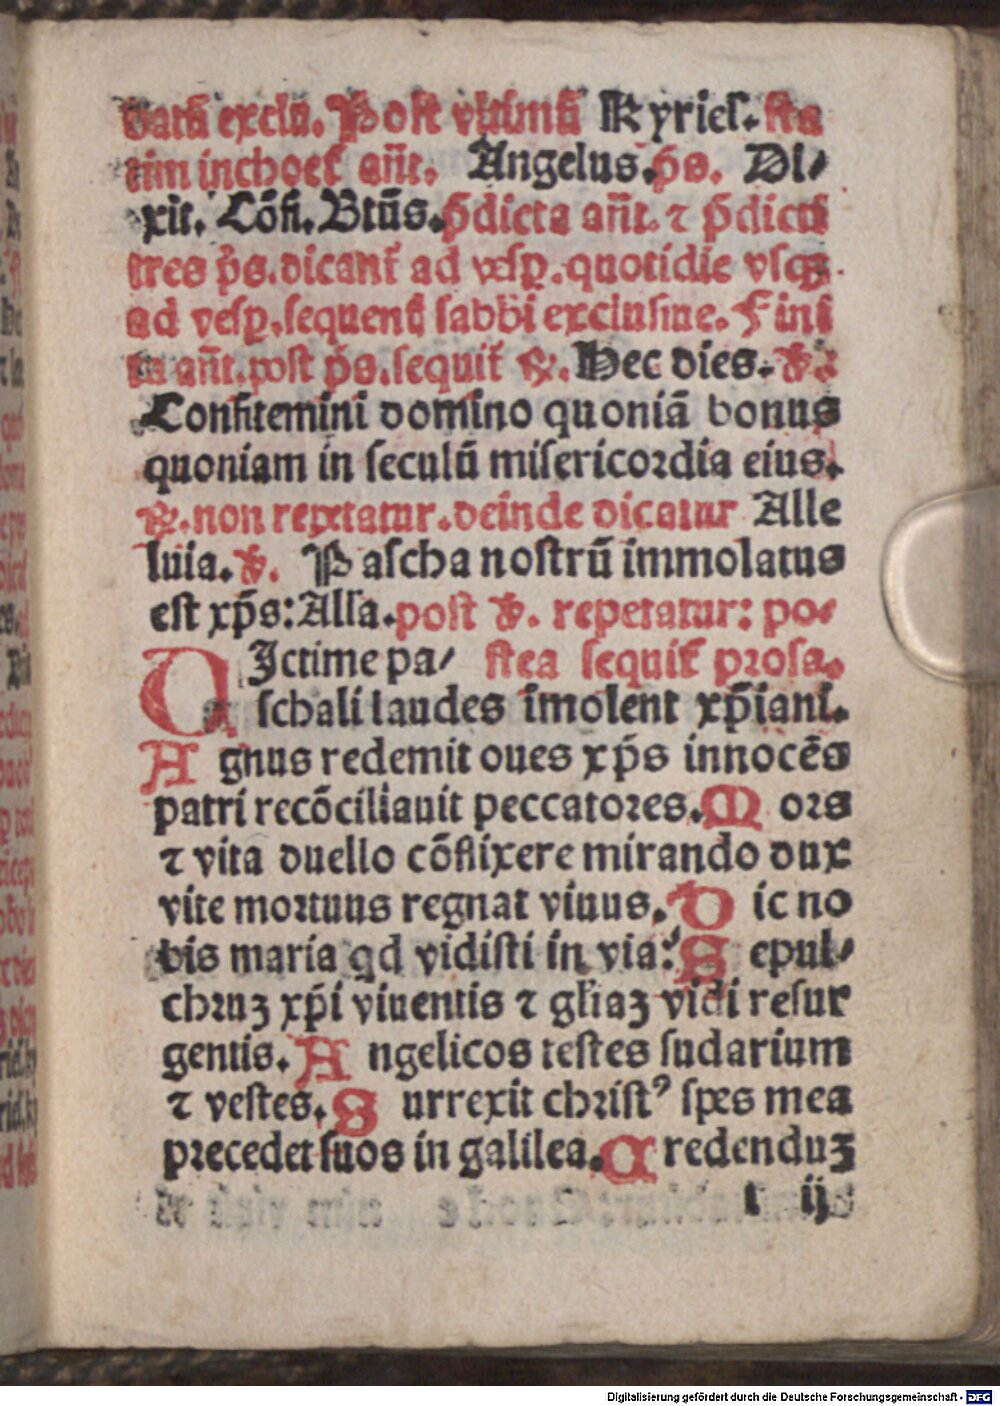 batū exclu. Post vltimū Kyriel. sta
tim inchoet᷑ añt. Angelus. p̄s. Di/
xit. Cōfi. Btūs. p̄dicta añt. ⁊ p̄dicti
tres p̄s. dicant᷑ ad vesp̱. quotidie vsqꝫ
ad vesp̱. sequentꝭ sabbi exclusiue. Fini
ta añt. post p̄s. sequit᷑ ℟. Hec dies. ℣.
Confitemini domino quoniā bonus
quoniam in seculū misericordia eius.
℟. non repetatur. deinde dicatur Alle
luia. ℣. Pascha nostrū immolatus
est xp̄s: Alla. post ℣. repetatur: po/
VIctime pa/ stea sequit᷑ prosa.
schali laudes īmolent xp̄iani.
Agnus redemit oues xp̄s innocēs
patri recōciliauit peccatores. Mors
⁊ vita duello cōflixere mirando dux
vite mortuus regnat viuus. Dic no
bis maria qd vidisti in via: Sepul/
chruꝫ xp̄i viuentis ⁊ gl̄iaꝫ vidi resur
gentis. Angelicos testes sudarium
⁊ vestes. Surrexit christꝰ spes mea
precedet suos in galilea. Credenduꝫ
t ij
Digitalisierung gefördert durch die Deutsche Forschungsgemeinschaft - DFG